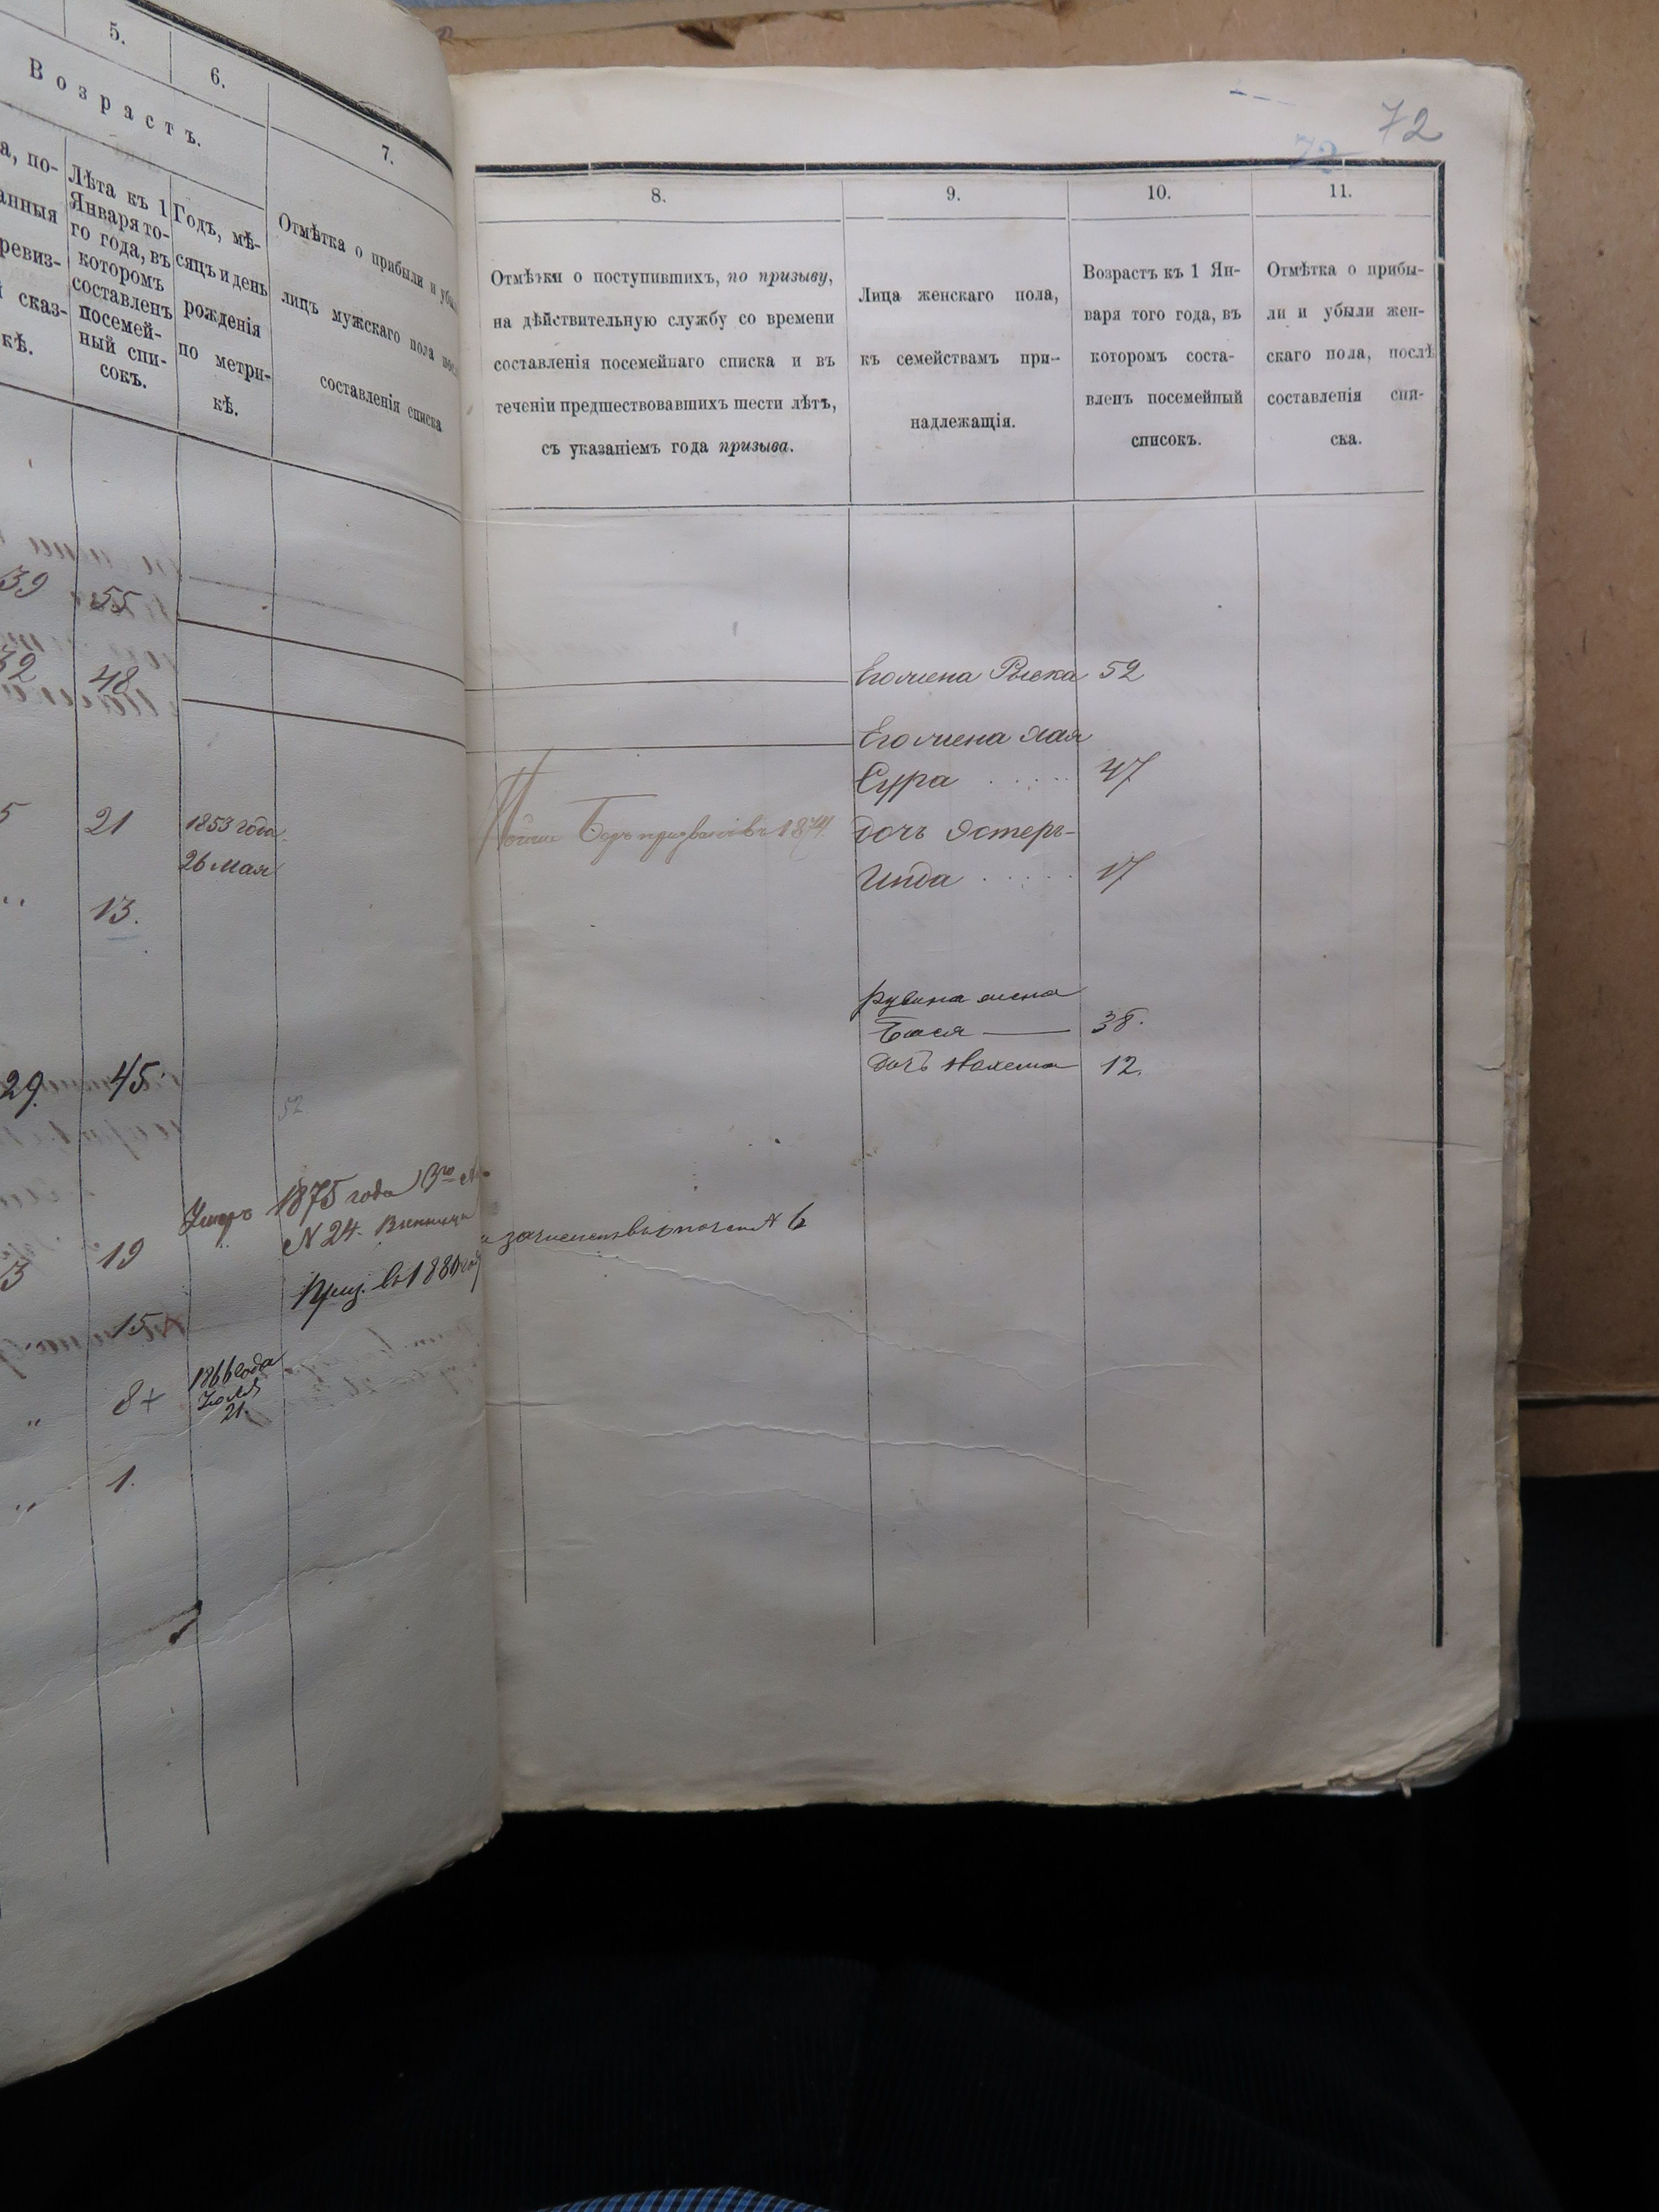 5.
6.
7.
Возрастъ.
а, по-
ревиз-
сказ-
кѣ.
Лѣта къ 1
Января то-
го года, въ
которомъ
составленъ
посемей-
ный спи-
сокъ.
Годъ, мѣ-
сяцъ и день
рожденія
по метри-
кѣ.
Отмѣтка о прибыли и
лицъ мужскаго пола
составленія списка
39 55
32 48
21 1853 года
26 Мая
13.
29. 45.
52
Умеръ 1875 года
N 24.
19
15
Приз. въ 1880
8+ 1866 года
Іюля
21.
1.
72
72
8.
9.
10.
11.
Отмѣтки о поступившихъ, по призыву,
на дѣйствительную службу со времени
составленія посемейнаго списка и въ
теченіи предшествовавшихъ шести лѣтъ,
съ указаніемъ года призыва.
Лица женскаго пола,
къ семействамъ при-
надлежащія.
Возрастъ къ 1 Ян-
варя того года, въ
которомъ соста-
вленъ посемейный
списокъ.
Отмѣтка о прибы-
ли и убыли жен-
скаго пола, послѣ
составленія спи-
ска.
Его жена Рыска 52
Его жена
Сура 47
Беръ призванъ въ 1874.
дочь Эстеръ-
Инда 17
Рувина жена
Бася 38.
дочь Нахема 12.
N 6